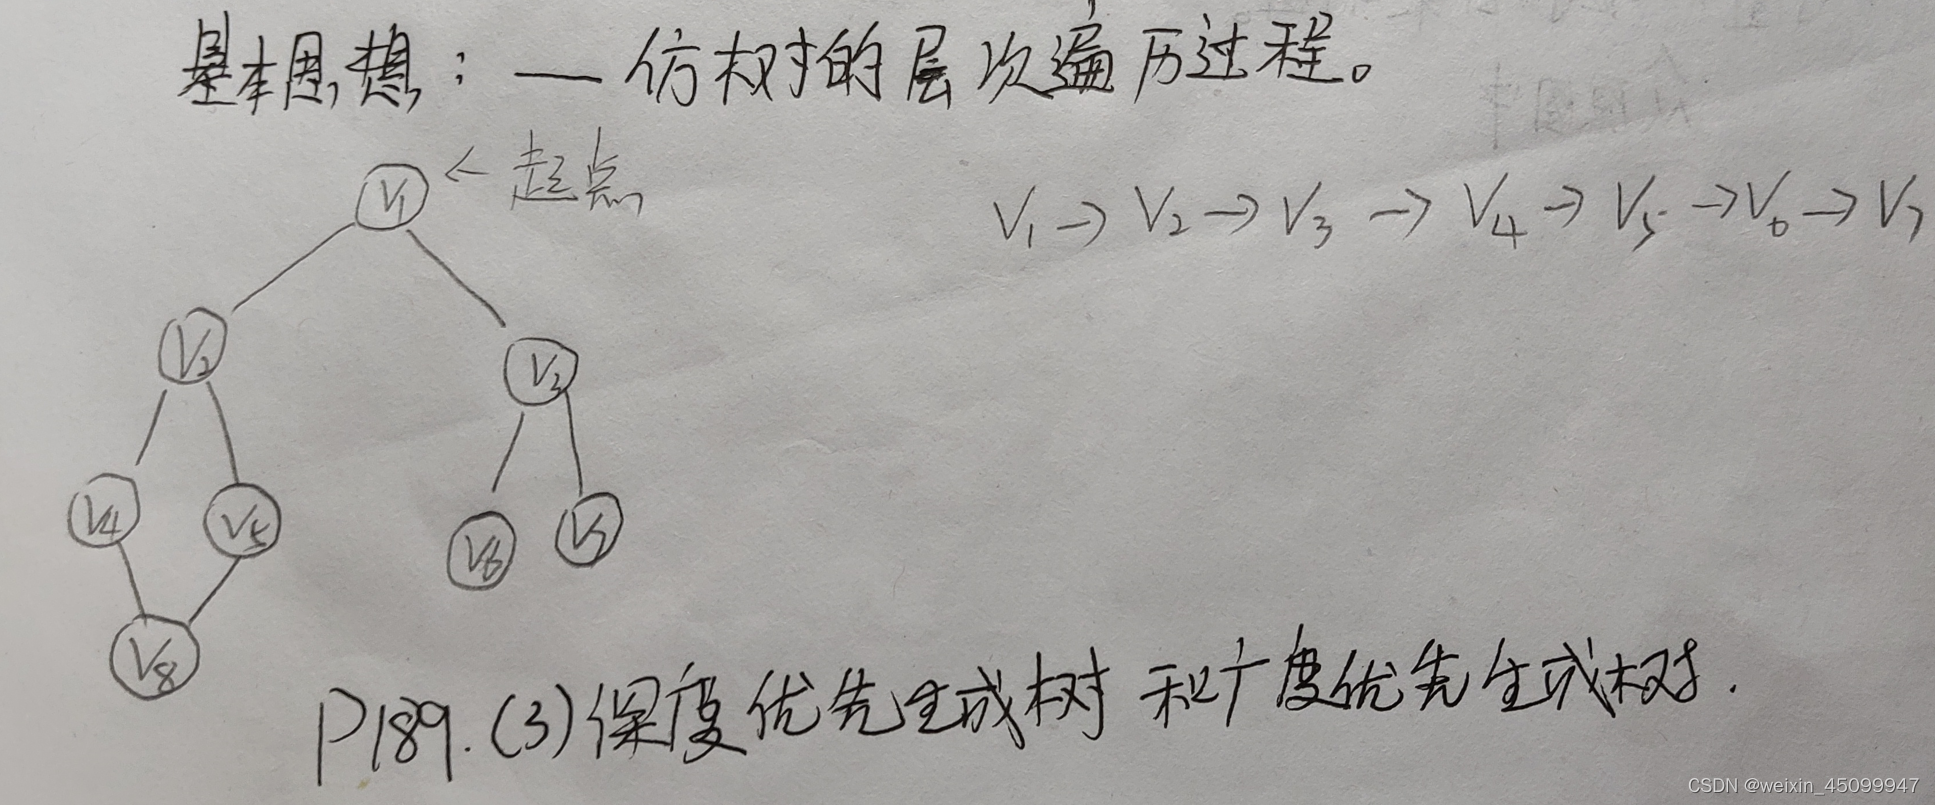 基本思想：— 仿树的层次遍历过程。
V1 ← 起点
V1 → V2 → V3 → V4 → V5 → V6 → V7
V2 V3
V4 V5 V6 V7
V8
P189.(3)深度优先生成树 和广度优先生成树.
CSDN @weixin_45099947